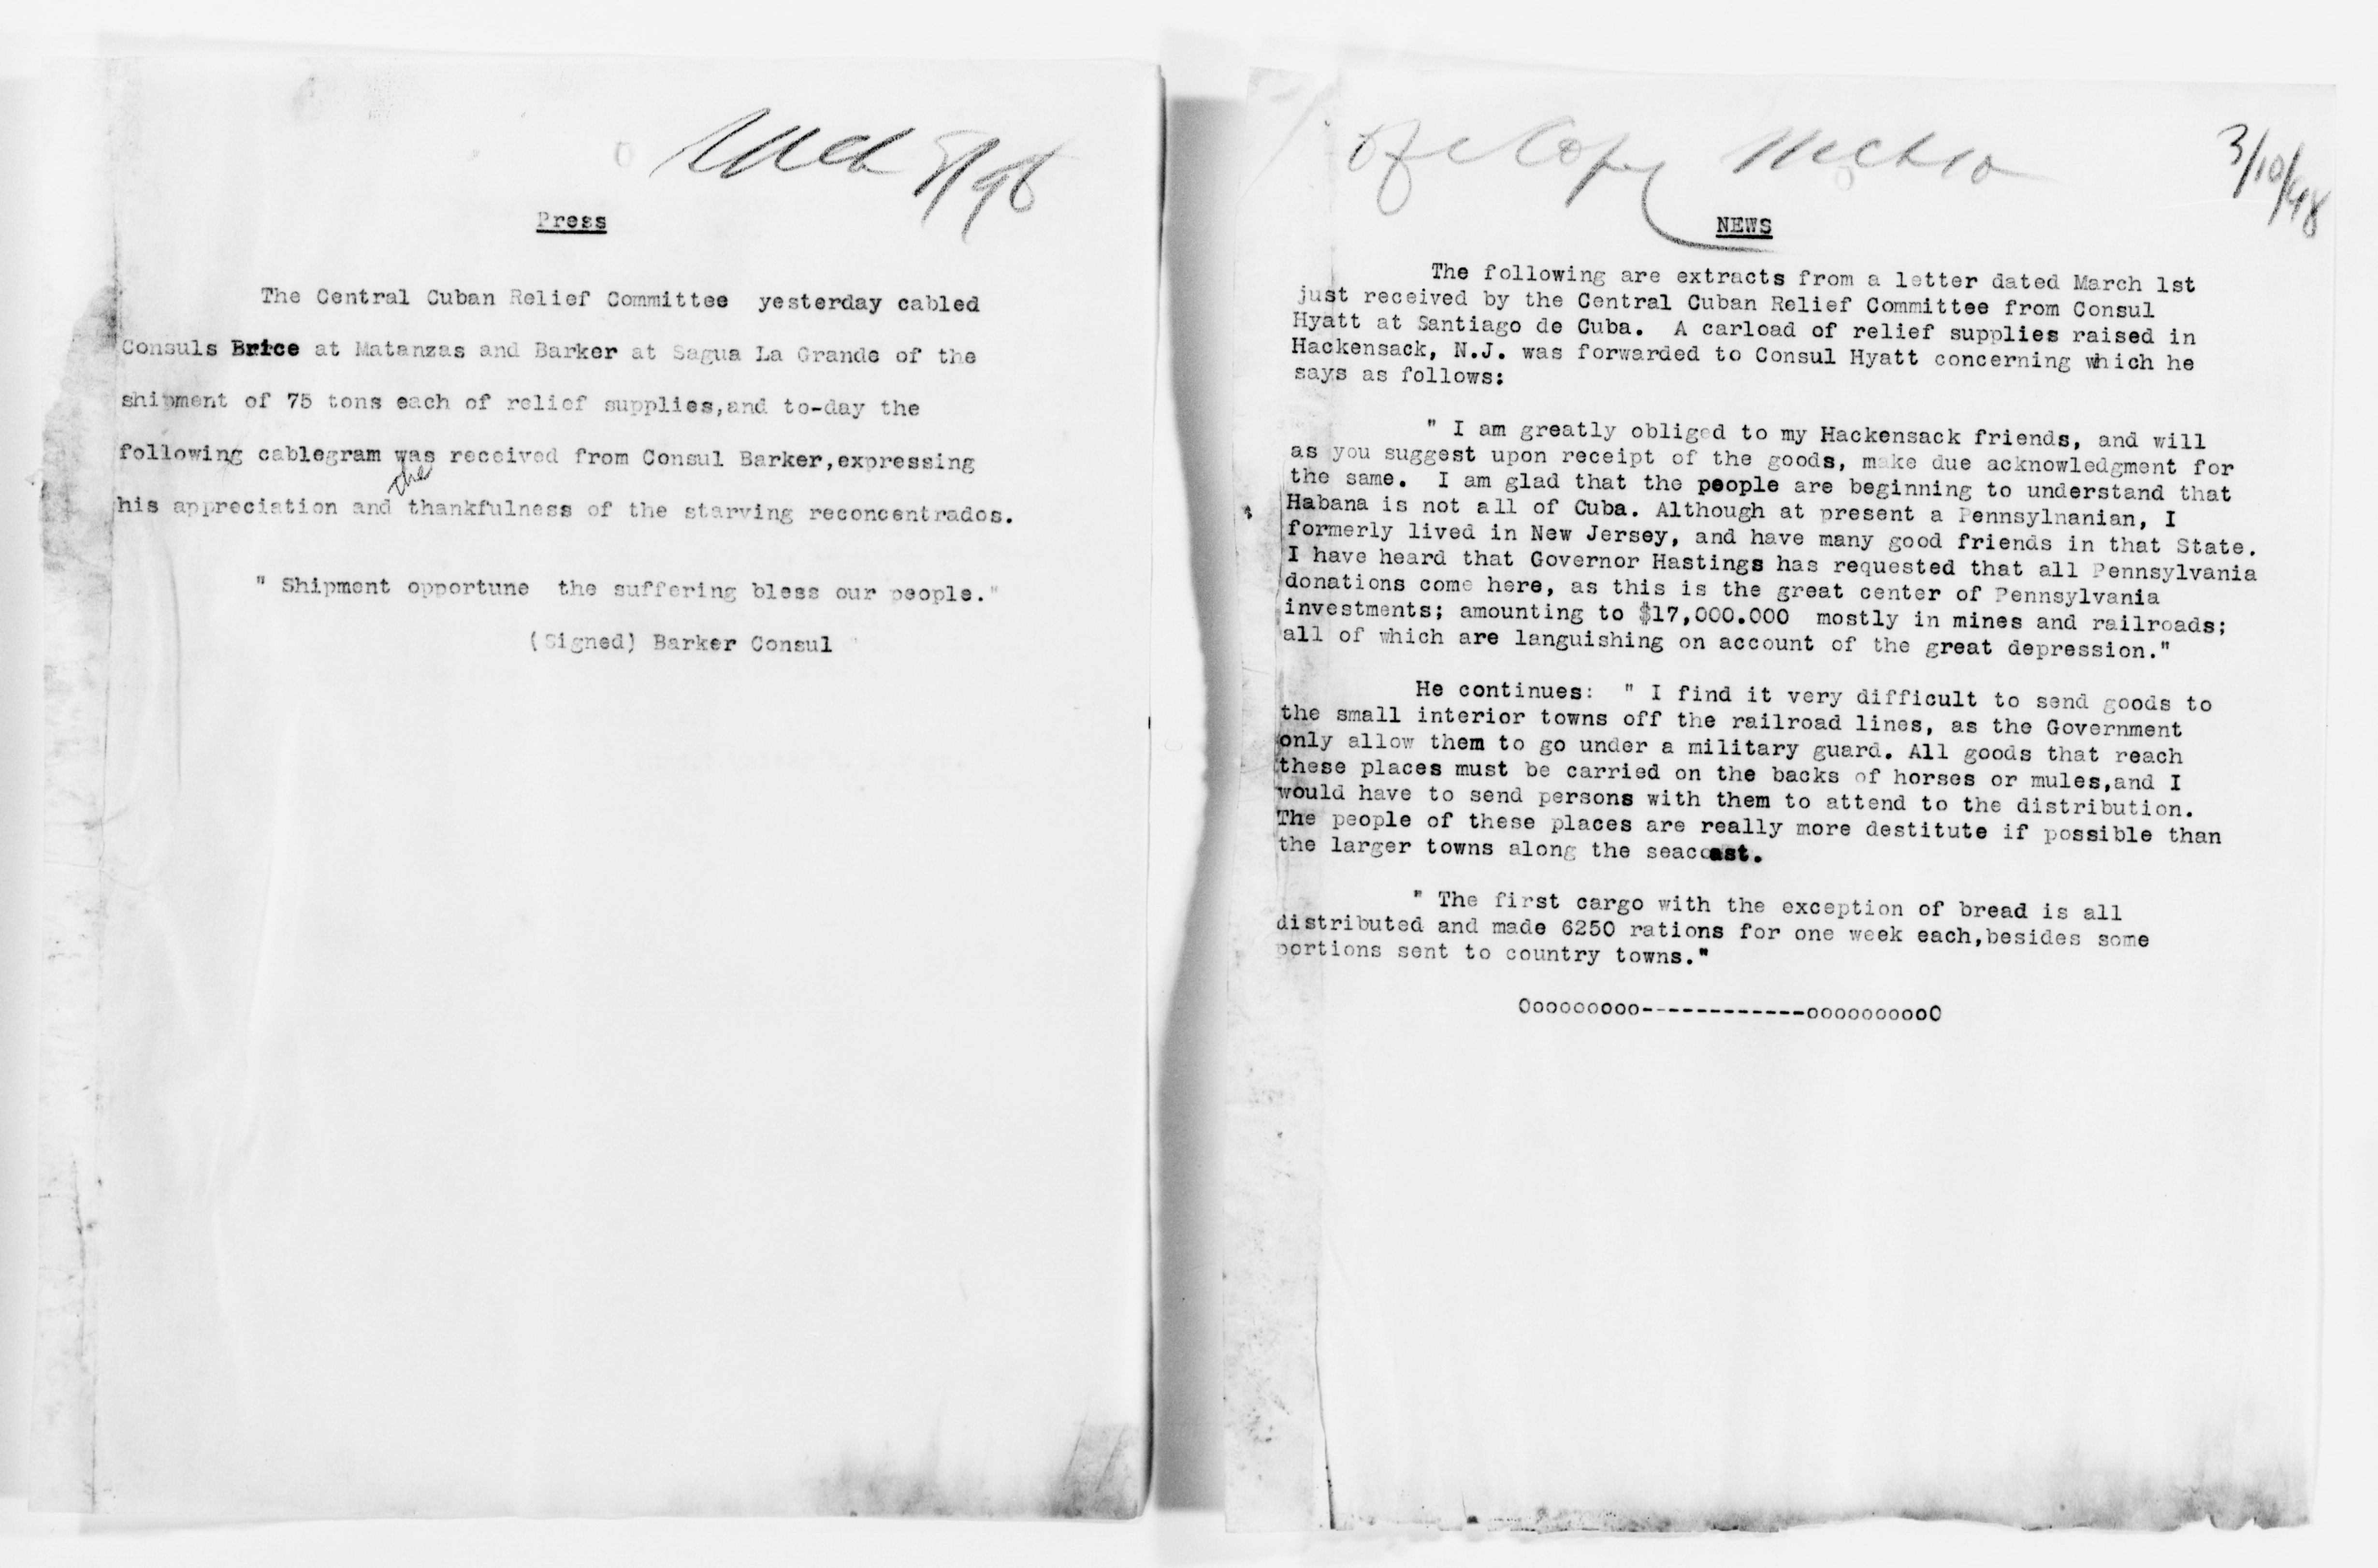 Mch 8/98
Press
The Central Cuban Relief Committee yesterday cabled
Consuls Brice at Matanzas and Barker at Sagua La Grande of the
shipment of 75 tons each of relief supplies,and to-day the
following cablegram was received from Consul Barker,expressing
his appreciation and the thankfulness of the starving reconcentrados.
" Shipment opportune the suffering bless our people."
(Signed) Barker Consul "
Ofc Copy Mch 10
3/10/98
NEWS
The following are extracts from a letter dated March 1st
just received by the Central Cuban Relief Committee from Consul
Hyatt at Santiago de Cuba. A carload of relief supplies raised in
Hackensack, N.J. was forwarded to Consul Hyatt concerning which he
says as follows:
" I am greatly obliged to my Hackensack friends, and will
as you suggest upon receipt of the goods, make due acknowledgment for
the same. I am glad that the people are beginning to understand that
Habana is not all of Cuba. Although at present a Pennsylnanian, I
formerly lived in New Jersey, and have many good friends in that State.
I have heard that Governor Hastings has requested that all Pennsylvania
donations come here, as this is the great center of Pennsylvania
investments; amounting to $17,000.000 mostly in mines and railroads;
all of which are languishing on account of the great depression."
He continues: " I find it very difficult to send goods to
the small interior towns off the railroad lines, as the Government
only allow them to go under a military guard. All goods that reach
these places must be carried on the backs of horses or mules,and I
would have to send persons with them to attend to the distribution.
The people of these places are really more destitute if possible than
the larger towns along the seacoast.
" The first cargo with the exception of bread is all
distributed and made 6250 rations for one week each,besides some
portions sent to country towns."
Ooooooooo------------oooooooooO